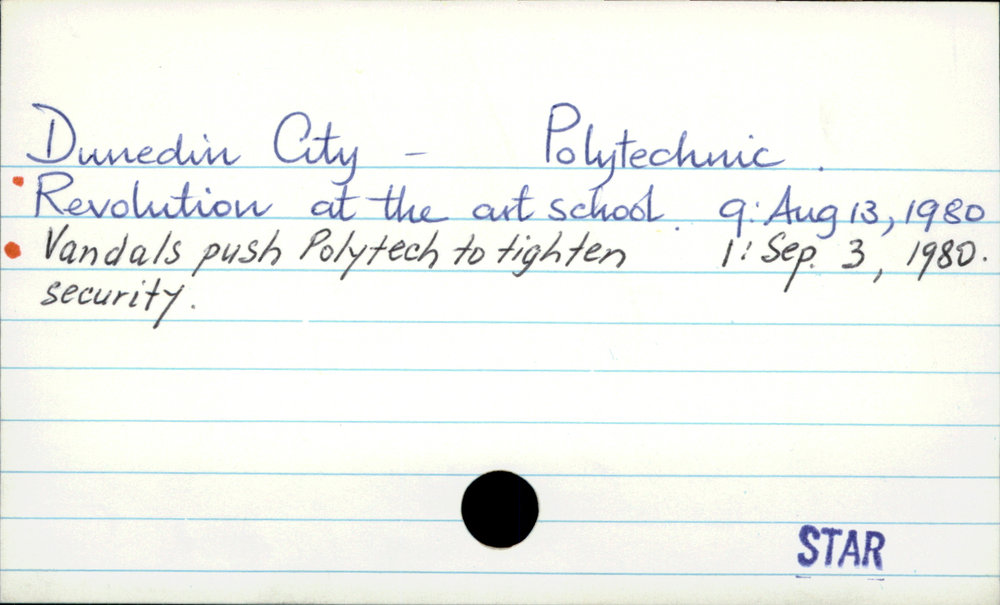 Dunedin City - Polytechnic.
Revolution at the art school. 9: Aug 13, 1980
Vandals push Polytech to tighten 1: Sep. 3, 1980.
security.
STAR